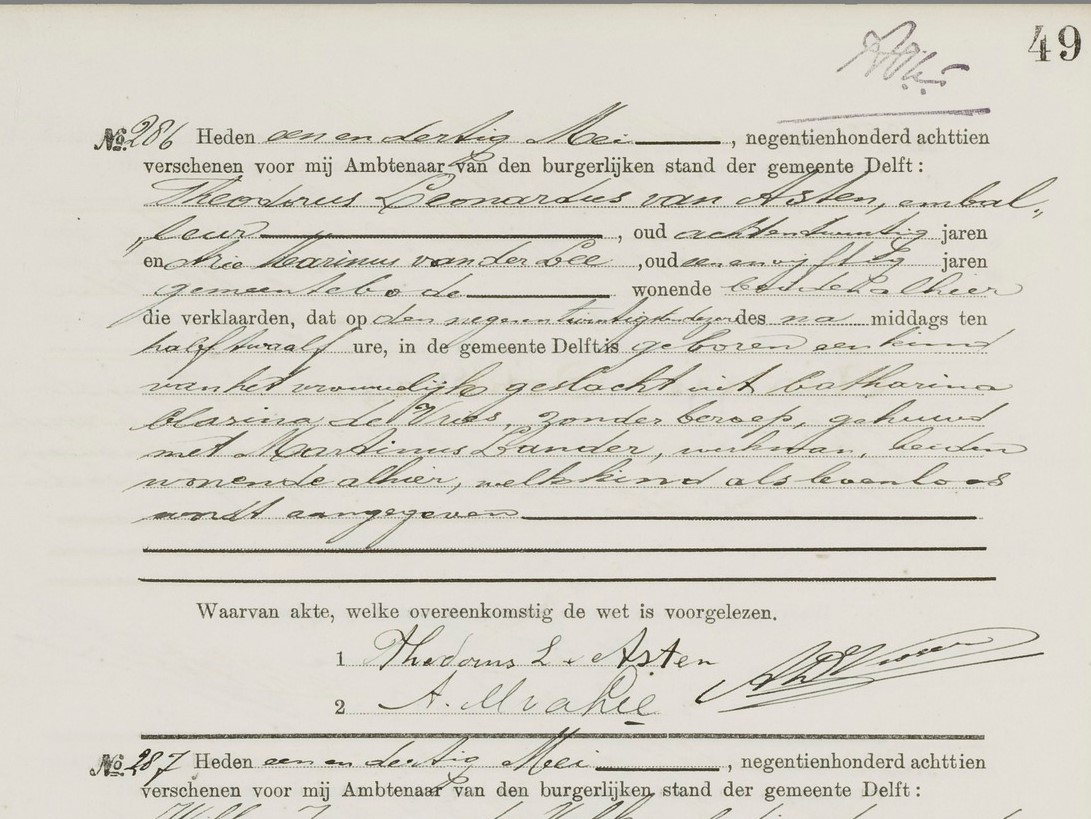 49
No. 286 Heden een en dertig Mei, negentienhonderd achttien
verschenen voor mij Ambtenaar van den burgerlijken stand der gemeente Delft:
Theodorus Leonardus van Asten, embal„
„leur, oud achtentwintig jaren
en Arie Marinus van der Lee, oud eenenvijftig jaren
gemeentebode wonende beiden alhier
die verklaarden, dat op den negenentwintigsten dezer des na middags ten
half twaalf ure, in de gemeente Delft is geboren een kind
van het vrouwelijk geslacht uit Catharina
Clasina de Vries, zonder beroep, gehuwd
met Martinus Lander, werkman, beiden
wonende alhier, welk kind als levenloos
wordt aangegeven
Waarvan akte, welke overeenkomstig de wet is voorgelezen.
1 Thedorus L v Asten
2 A. M v d Lee
No. 287 Heden een en dertig Mei, negentienhonderd achttien
verschenen voor mij Ambtenaar van den burgerlijken stand der gemeente Delft: